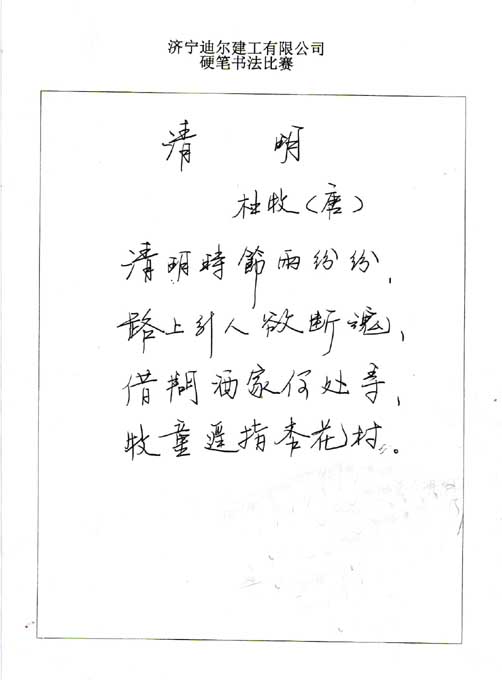 济宁迪尔建工有限公司
硬笔书法比赛
清 明
杜牧（唐）
清明時節雨纷纷，
路上引人欲断魂，
借问酒家何处寻，
牧童遥指杏花村。